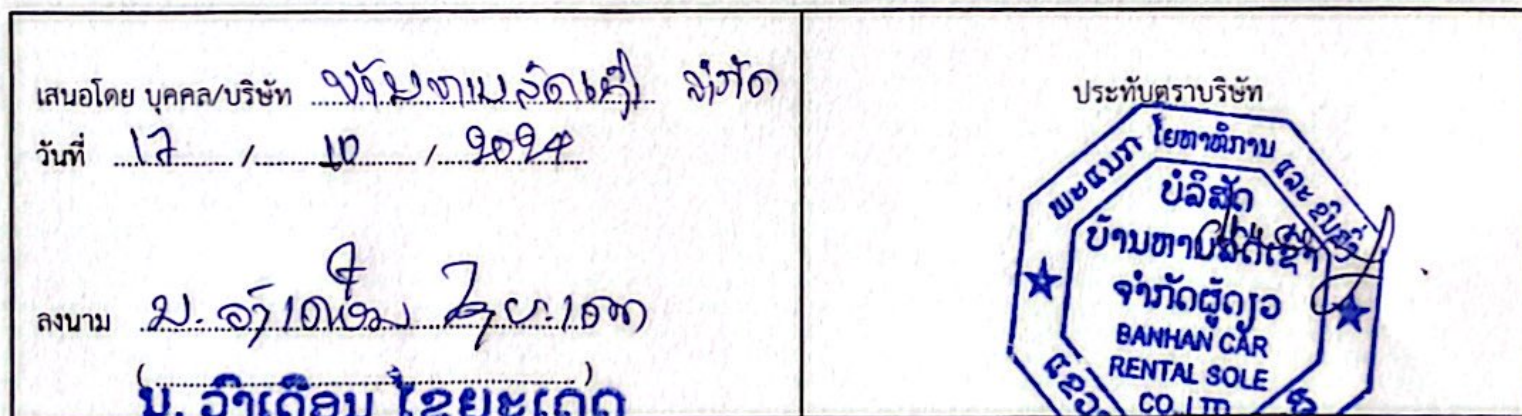 เสนอโดย บุคคล/บริษัท ບ້ານຫານລົດເຊົ່າ ຈຳກັດ
วันที่ 17 / 10 / 2024
ลงนาม ນ. ວຳເດືອນ ໄຊຍະເດດ
ນ. ວຳເດືອນ ໄຊຍະເດດ
ประทับตราบริษัท
ພະແນກ ໂຍທາທິການ ແລະ ຂົນສົ່ງ
ບໍລິສັດ
ບ້ານຫານລົດເຊົ່າ
ຈຳກັດຜູ້ດຽວ
BANHAN CAR
RENTAL SOLE
CO.,LTD